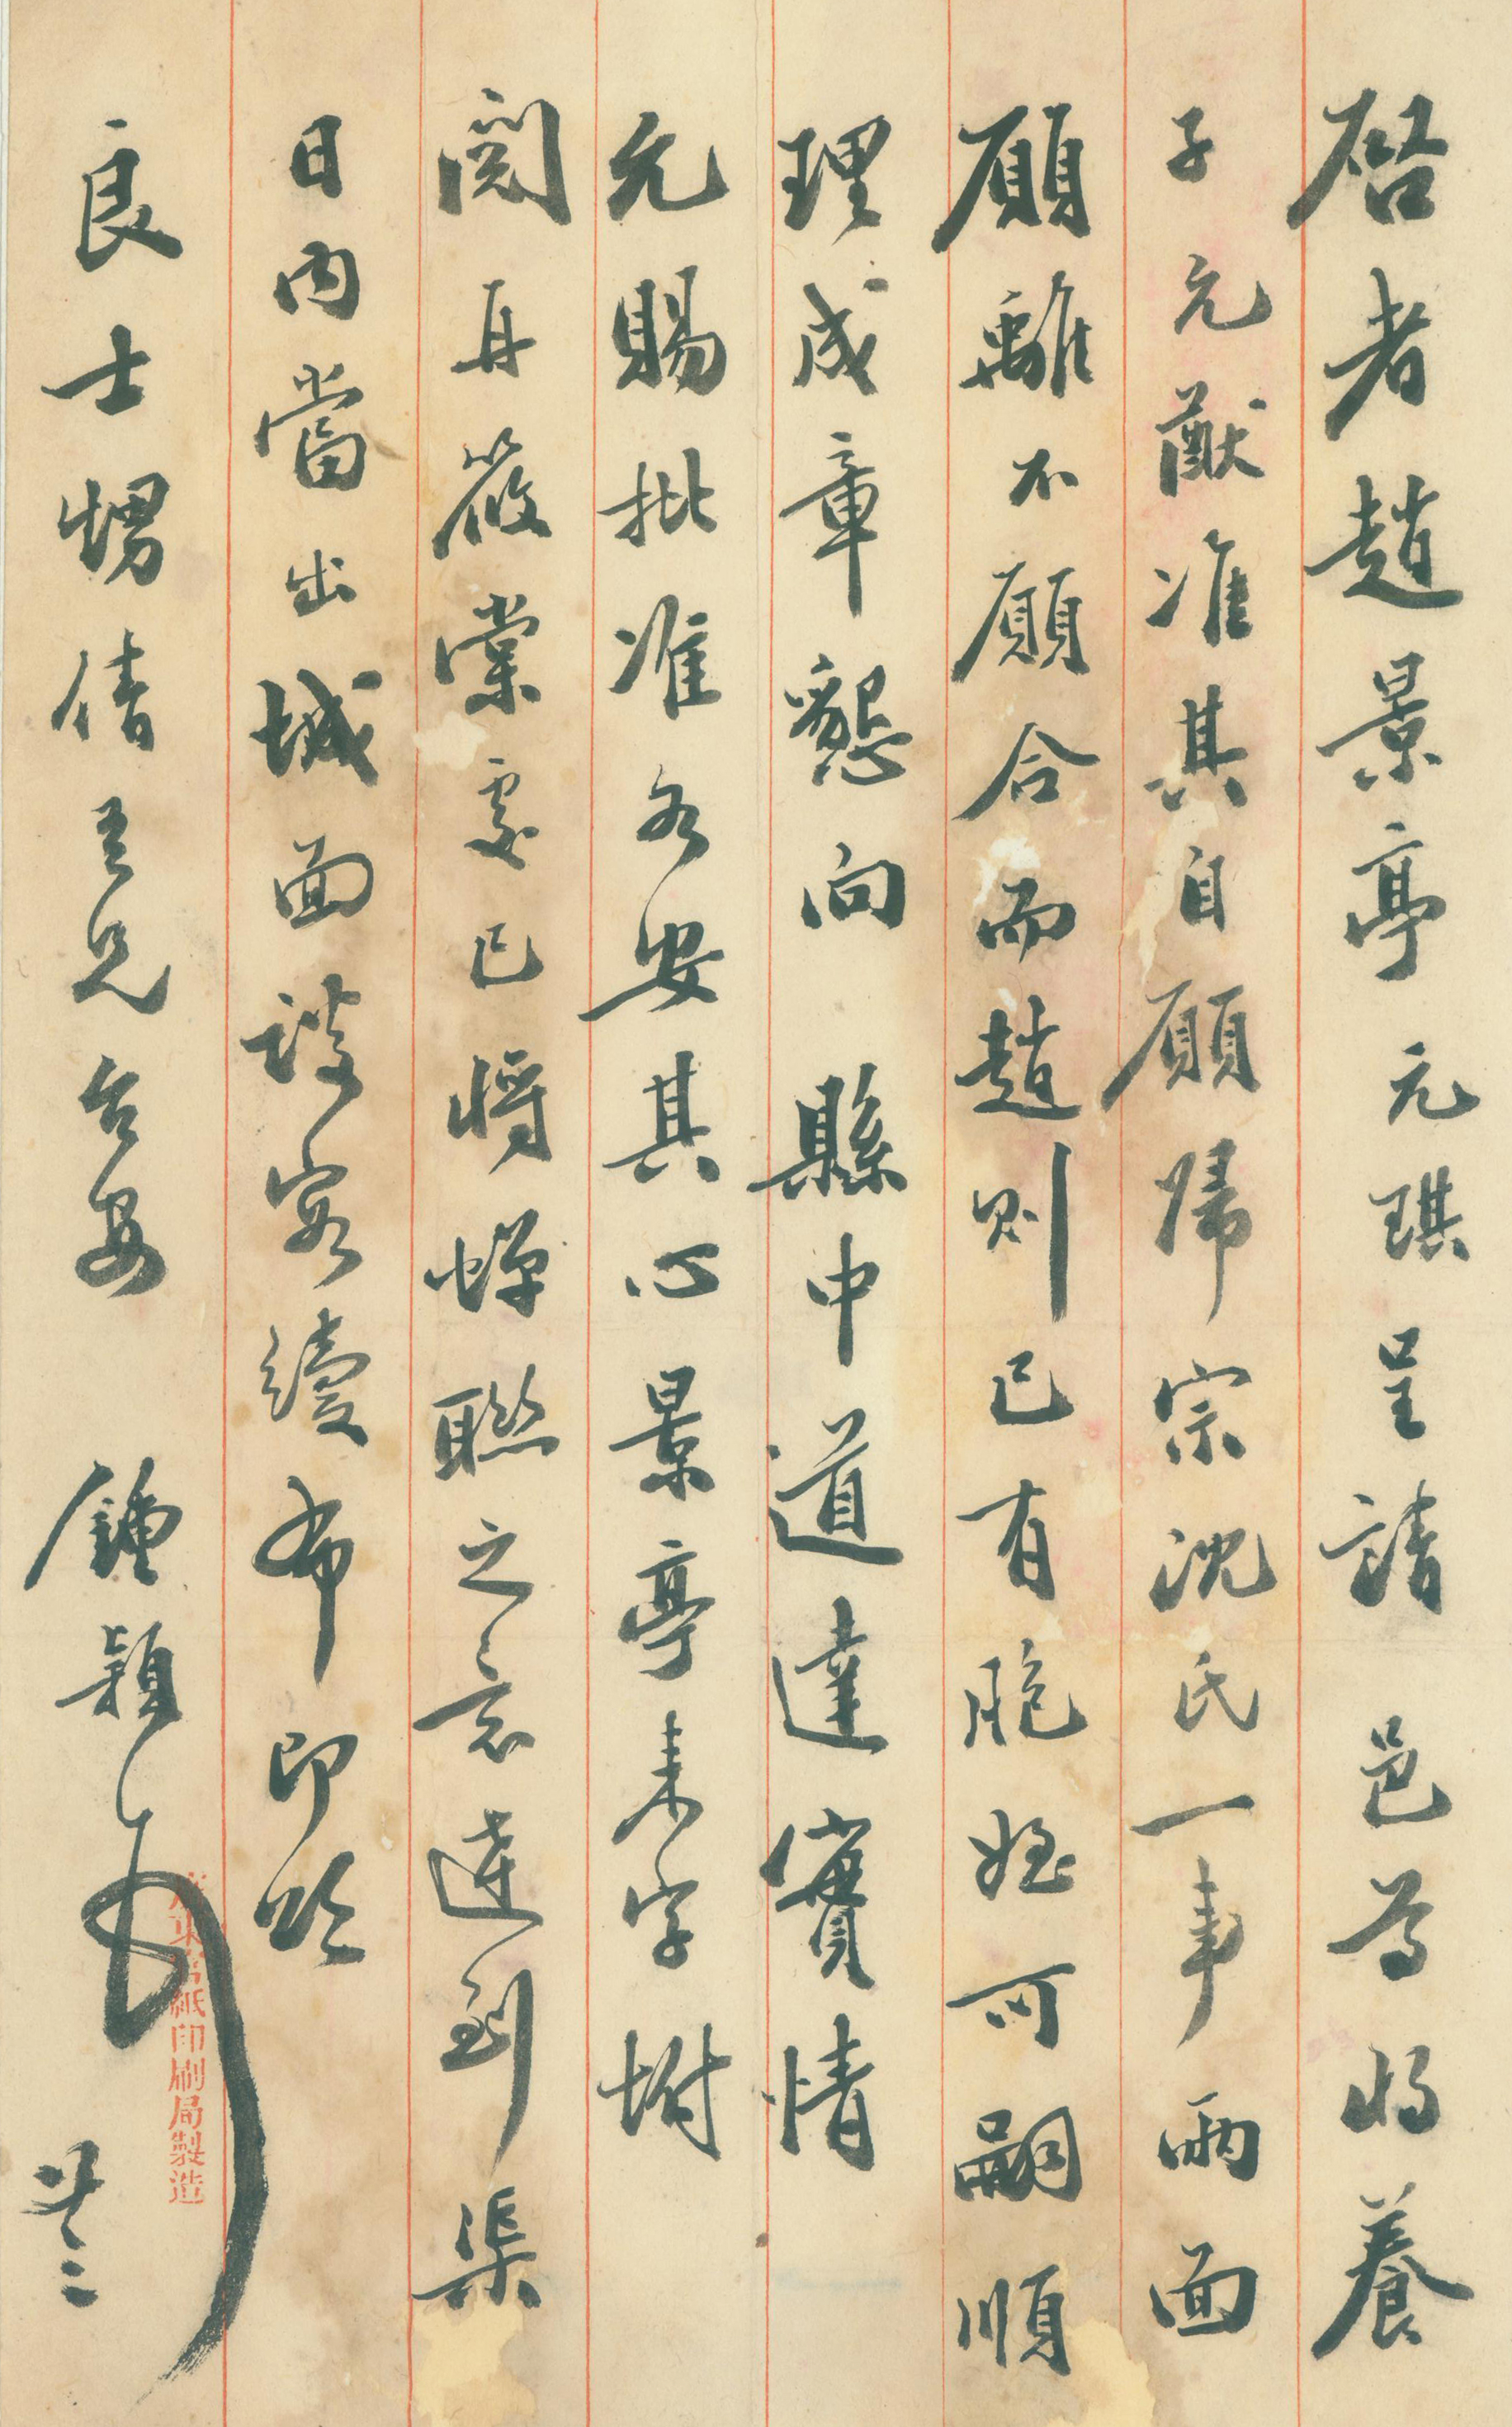 啓者趙景亭元琪呈請 邑尊將養
子元猷准其自願歸宗沈氏一事兩面
願離不願合而趙則已有胞姪可嗣順
理成章懇向 縣中道達實情
允賜批准各安其心景亭来字坿
閱再筱棠處已將蟬聯之意達到渠
日内當出城面談容續布即頌
良士甥倩吾兄台安 鍾穎
廿二
官紙印刷局製造